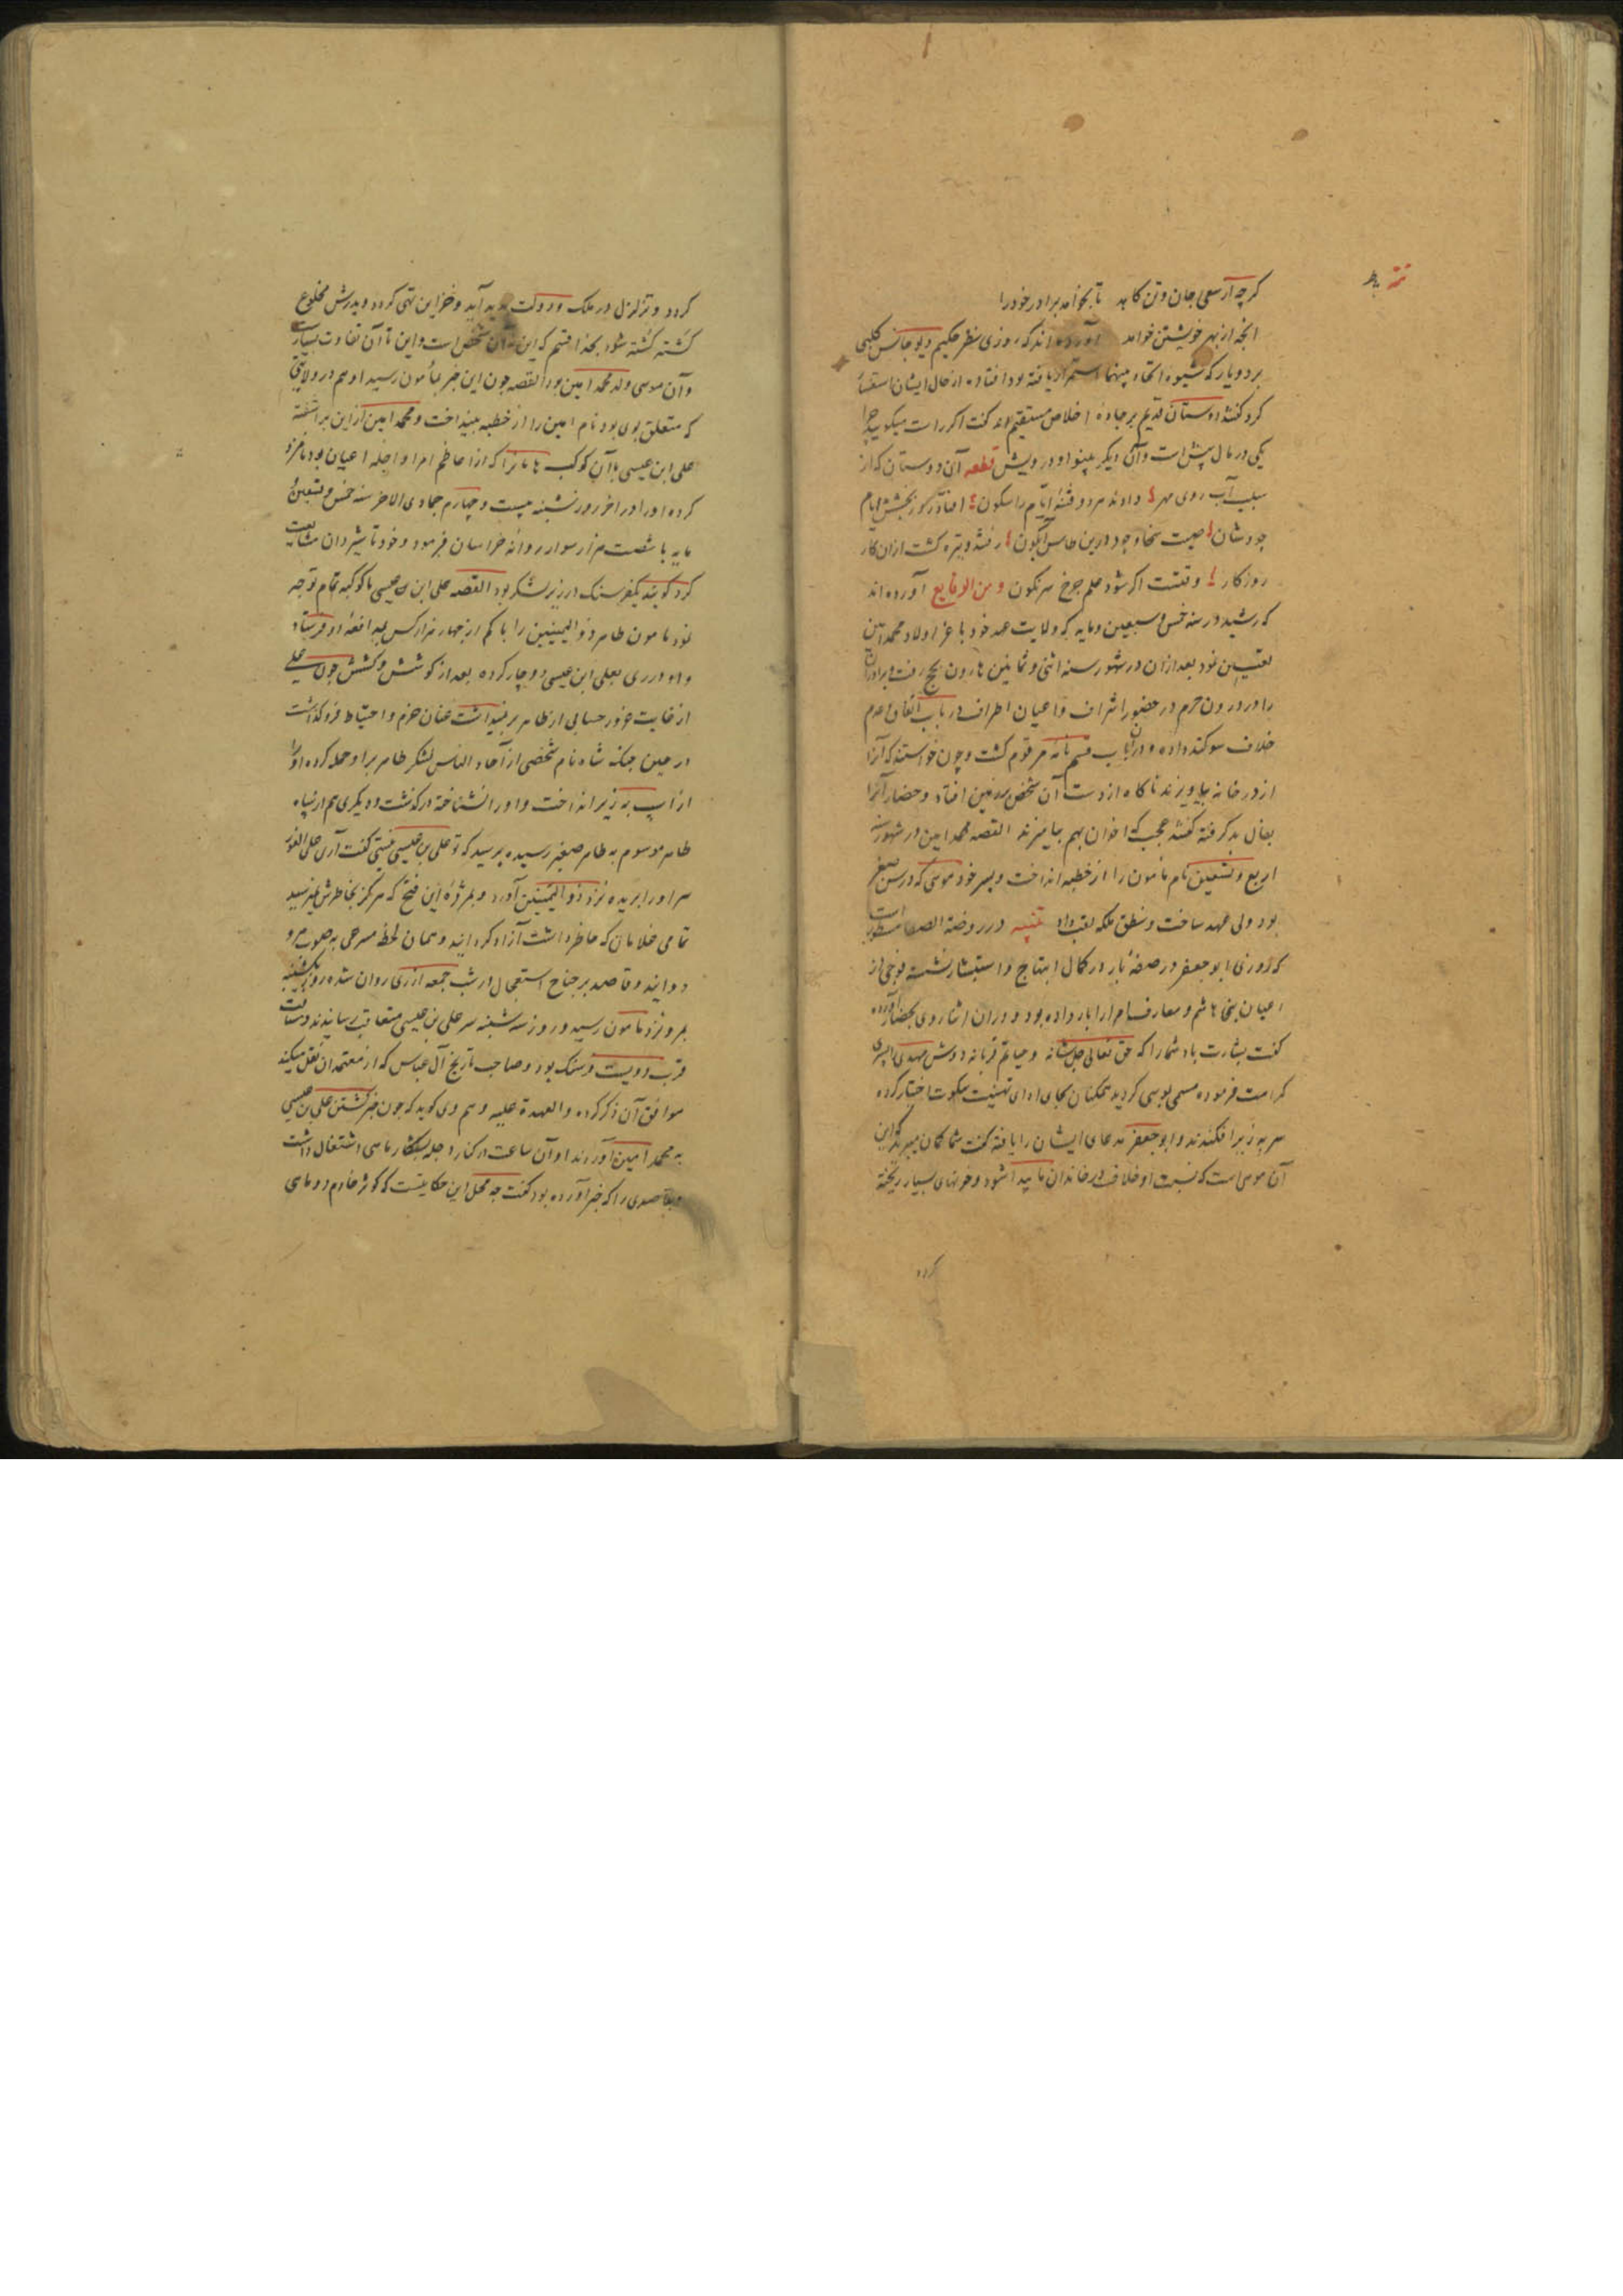 کرچه از سعی جان و تن کاهد تا بخواهد برادر خود را
انچه از بهر خویشتن خواهد آورده اند که روزی نظر حکیم دیوجانس کلبی
بر دو یار که شیوه اتحاد بینهما استمرار یافته بود افتاده از حال ایشان استفسار
کرد کفتند دوستان قدیم بر جادهٔ اخلاص مستقیم اند کفت اکر راست میکویید چرا
یکی در مال پیش است و آن دیکر بینوا و درویش قطعه آن دوستان که از
سبب آب روی مهر دادند هر دو فتنهٔ ایام را سکون
جودشان صیت سخا و جود درین طاس آبکون رفتند و تیره کشت از ان کار
روزکار وقتست اکر شود علم چرخ سرنکون و من الوقایع آورده اند
که رشید در سنه خمس و سبعین و مایه که ولایت عهد خود با عز اولاد محمد امین
تعیین نمود بعد از ان در شهور سنه اثنی و ثمانین هارون بحج رفت و برادران
را در درون حرم در حضور اشراف و اعیان اطراف در باب اتفاق و عدم
خلاف سوکند داده و در ان باب قسم نامه مرقوم کشت و چون خواستند که آنرا
از در خانه بیاویزند ناکاه از دست آن شخص بر زمین افتاد و حضار آنرا
بفال بد کرفته کفتند عجب که اخوان بهم بیامیزند القصه محمد امین در شهور سنه
اربع و تسعین نام مامون را از خطبه انداخت و پسر خود موسی که در سن صغر
بود ولی عهد ساخت و بنطق ملکه لقب داد تنبیه در روضة الصفا مسطور است
که روزی ابو جعفر در صفهٔ بار در کمال ابتهاج و استبشار نشسته فوجی از
اعیان بنی هاشم و معارف امرا را بار داده بود و در ان اثنا روی بحضار آورده
کفت بشارت باد شما را که حق تعالی جل شانه و حیاتم قربانه دوش مهدی را پسری
کرامت فرموده مسمی بموسی کردید همکنان بجای ادای تهنیت سکوت اختیار کرده
سر به زیر افکندند و ابو جعفر مدعای ایشان را یافته کفت شما کمان میبرید که این
آن موسی است که بسبب او خلاف در خاندان ما پیدا شود و خونهای بسیار ریخته
کردد
کردد و تزلزل در ملک و دولت پدید آید و خزاین تهی کردد و پدرش مخلوع
کشته کشته شود بخدا قسم که این نه آن شخص است و این تا آن تفاوت بسیارست
و آن موسی ولد محمد امین بود القصه چون این خبر بمأمون رسید او هم در ولایتی
که متعلق بوی بود نام امین را از خطبه بینداخت و محمد امین از این بر آشفته
علی ابن عیسی بن ماهان را که از اعاظم امرا و اجله اعیان بود نامزد
کرده او را در اخر روز شنبه بیست و چهارم جمادی الاخر سنه خمس و تسعین
مایه با شصت هزار سوار روانه خراسان فرمود و خود تا نهروان مشایعت
کرد کویند یکفرسنک در زیر لشکر بود القصه علی ابن عیسی با کوکبه تمام توجه
نمود مامون طاهر ذو الیمینین را با کم از چهار هزار کس بمدافعهٔ او فرستاد
و او در ری بعلی ابن عیسی دوچار کرده بعد از کوشش و کشش چون علی
از غایت غرور حسابی از طاهر بر نمیداشت عنان حزم و احتیاط فرو کذاشت
در عین جنک شاه نام شخصی از آحاد الناس لشکر طاهر بر او حمله کرده او را
از اسب به زیر انداخت و او را نشناخته در کذشت و دیکری هم از سپاه
طاهر موسوم به طاهر صغیر رسیده پرسید که تو علی بن عیسی نیستی کفت آری علی الفور
سر او را بریده نزد ذو الیمینین آورد و بمژدهٔ این فتح که هرکز بخاطرش نمیرسید
تمامی غلامان که حاظر داشت آزاد کردانید و همان لحظه مسرعی به صوب مرو
دوانید و قاصد بر جناح استعجال در شب جمعه از ری روان شده روز یکشنبه
بمرو نزد مامون رسید و روز سه شنبه سر علی بن عیسی متعاقب رسانیدند و مسافت
قرب دویست فرسنک بود و صاحب تاریخ آل عباس که از معتمدان نقل میکند
موافق آن ذکر کرده والعهدة علیه و هم وی کوید که چون خبر کشتن علی بن عیسی
به محمد امین آوردند او آن ساعت در کنار دجله بشکار ماهی اشتغال داشت
و قاصدی را که خبر آورده بود کفت چه محل این حکایتست که کوثر خادم دو ماهی